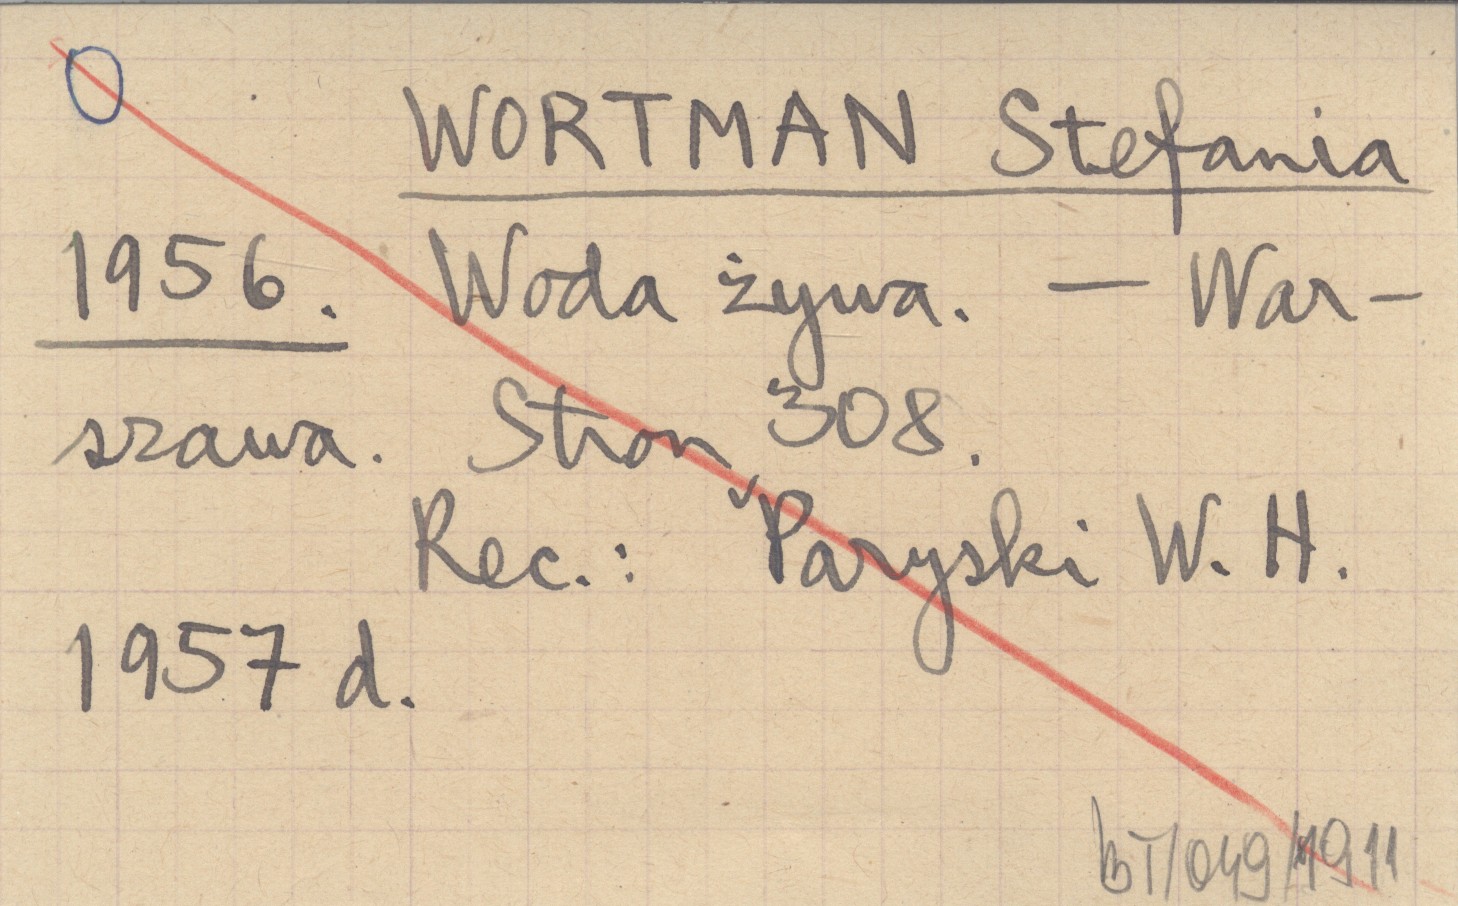 WORTMAN Stefania
1956. Woda żywa. — War-
szawa. Stron 308.
Rec.: Paryski W. H.
1957 d.
BT/049/1911